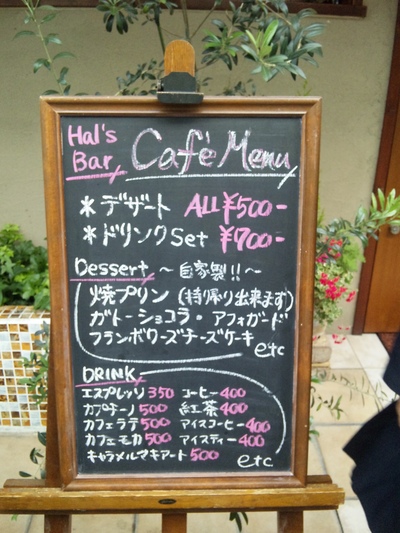 Hal's Bar Café Menu
＊デザート ALL ¥500-
＊ドリンクSet ¥700-
Dessert 〜自家製!!〜
焼プリン (持ち帰り出来ます)
ガトーショコラ・アフォガード
フランボワーズチーズケーキ
etc
DRINK
エスプレッソ 350 コーヒー 400
カプチーノ 500 紅茶 400
カフェラテ 500 アイスコーヒー 400
カフェモカ 500 アイスティー 400
キャラメルマキアート 500 etc